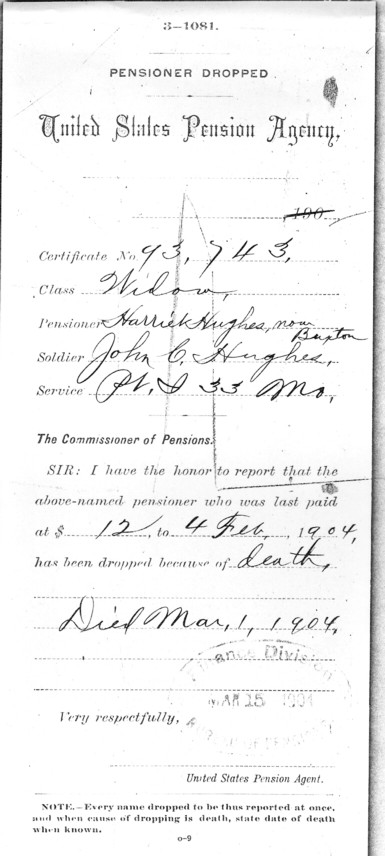 3—1081.
PENSIONER DROPPED
United States Pension Agency,
190
Certificate No. 93,743,
Class Widow,
Pensioner Harriet Hughes, now
Buxton
Soldier John C. Hughes,
Service Pt. I 33 Mo,
The Commissioner of Pensions.
SIR: I have the honor to report that the
above-named pensioner who was last paid
at $ 12, to 4 Feb, 1904,
has been dropped because of death,
Died Mar, 1, 1904,
Finance Division
MAR 15 1904
Very respectfully,
United States Pension Agent.
NOTE.—Every name dropped to be thus reported at once,
and when cause of dropping is death, state date of death
when known.
o-9